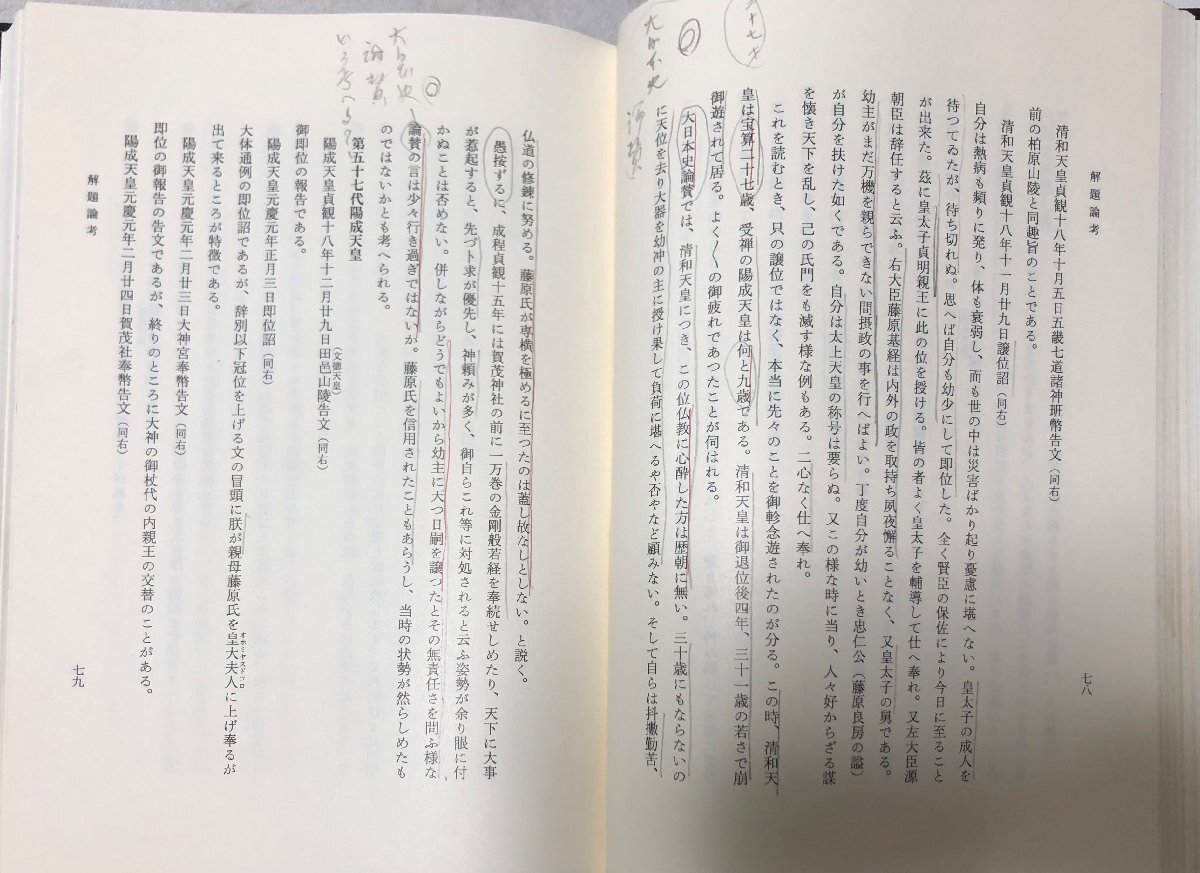 解題論考
七八
清和天皇貞観十八年十月五日五畿七道諸神班幣告文(同右)
前の柏原山陵と同趣旨のことである。
清和天皇貞観十八年十一月廿九日譲位詔(同右)
自分は熱病も頻りに発り、体も衰弱し、而も世の中は災害ばかり起り憂慮に堪へない。皇太子の成人を
待つてゐたが、待ち切れぬ。思へば自分も幼少にして即位した。全く賢臣の保佐により今日に至ること
が出来た。茲に皇太子貞明親王に此の位を授ける。皆の者よく皇太子を輔導して仕へ奉れ。又左大臣源
朝臣は辞任すると云ふ。右大臣藤原基経は内外の政を取持ち夙夜懈ることなく、又皇太子の舅である。
幼主がまだ万機を親らできない間摂政の事を行へばよい。丁度自分が幼いとき忠仁公(藤原良房の諡)
が自分を扶けた如くである。自分は太上天皇の称号は要らぬ。又この様な時に当り、人々好からざる謀
を懐き天下を乱し、己の氏門をも滅す様な例もある。二心なく仕へ奉れ。
これを読むとき、只の譲位ではなく、本当に先々のことを御軫念遊されたのが分る。この時、清和天
皇は宝算二十七歳、受禅の陽成天皇は何と九歳である。清和天皇は御退位後四年、三十一歳の若さで崩
御遊されて居る。よく〳〵の御疲れであつたことが伺はれる。
大日本史論賛では、清和天皇につき、この位仏教に心酔した方は歴朝に無い。三十歳にもならないの
に天位を去り大器を幼冲の主に授け果して負荷に堪へるや否やなど顧みない。そして自らは抖擻勤苦、
二十七才
大日本史
論賛
仏道の修錬に努める。藤原氏が専横を極めるに至つたのは蓋し故なしとしない。と説く。
愚按ずるに、成程貞観十五年には賀茂神社の前に一万巻の金剛般若経を奉読せしめたり、天下に大事
が惹起すると、先づト求が優先し、神頼みが多く、御自らこれ等に対処されると云ふ姿勢が余り眼に付
かぬことは否めない。併しながらどうでもよいから幼主に天つ日嗣を譲つたとその無責任さを問ふ様な
論賛の言は少々行き過ぎではないが。藤原氏を信用されたこともあらうし、当時の状勢が然らしめたも
のではないかとも考へられる。
第五十七代陽成天皇
陽成天皇貞観十八年十二月廿九日田邑山陵告文(同右)
(文徳天皇)
御即位の報告である。
陽成天皇元慶元年正月三日即位詔(同右)
大体通例の即位詔であるが、辞別以下冠位を上げる文の冒頭に朕が親母藤原氏を皇大夫人に上げ奉るが
オホミヤスドコロ
出て来るところが特徴である。
陽成天皇元慶元年二月廿三日大神宮奉幣告文(同右)
即位の御報告の告文であるが、終りのところに大神の御杖代の内親王の交替のことがある。
陽成天皇元慶元年二月廿四日賀茂社奉幣告文(同右)
大日本史
論賛
解題論考
七九